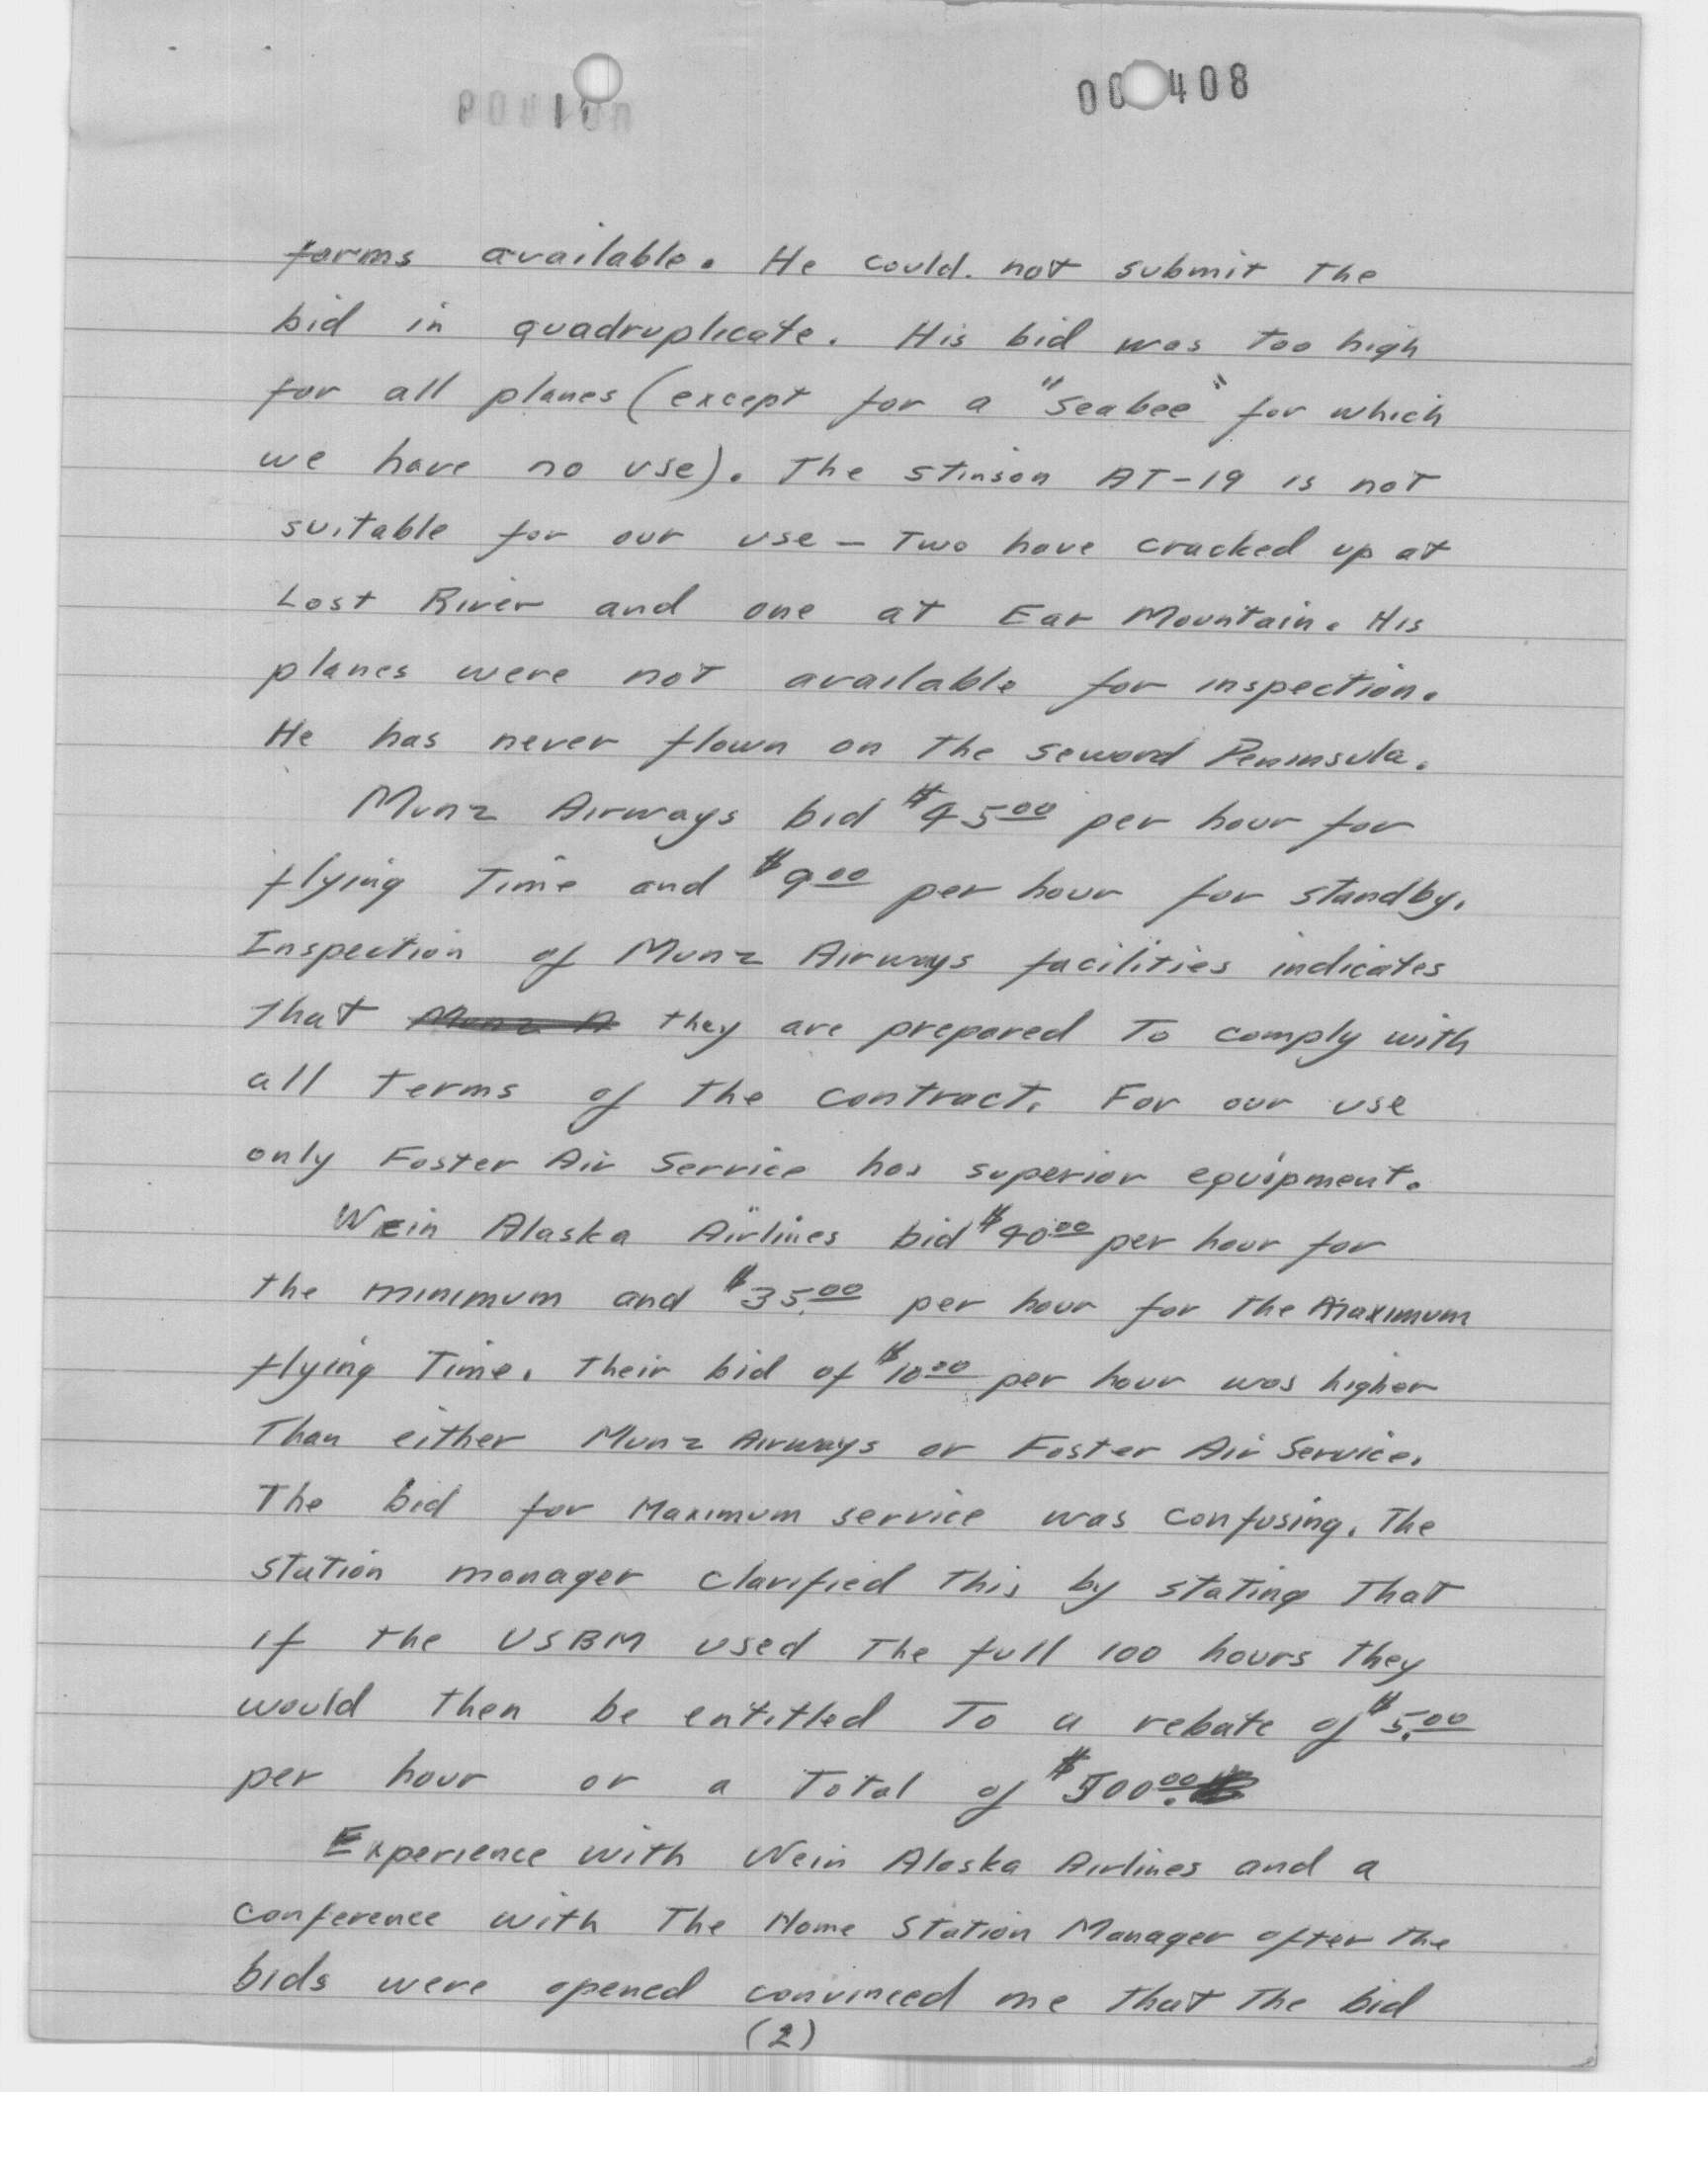 408
forms available. He could not submit the
bid in quadruplicate. His bid was too high
for all planes (except for a "Seabee" for which
we have no use). The Stinson AT-19 is not
suitable for our use - Two have cracked up at
Lost River and one at Ear Mountain. His
planes were not available for inspection.
He has never flown on the Seward Peninsula.
Munz Airways bid $45.00 per hour for
flying Time and $9.00 per hour for standby.
Inspection of Munz Airways facilities indicates
That Munz A they are prepared To comply with
all terms of the contract. For our use
only Foster Air Service has superior equipment.
Wein Alaska Airlines bid $40.00 per hour for
the minimum and $35.00 per hour for the Maximum
flying Time. Their bid of $10.00 per hour was higher
Than either Munz Airways or Foster Air Service.
The bid for Maximum service was confusing. The
station manager clarified This by stating That
if the USBM used The full 100 hours they
would then be entitled To a rebate of $5.00
per hour or a Total of $500.00
Experience with Wein Alaska Airlines and a
conference with The Nome Station Manager after the
bids were opened convinced me that The bid
(2)